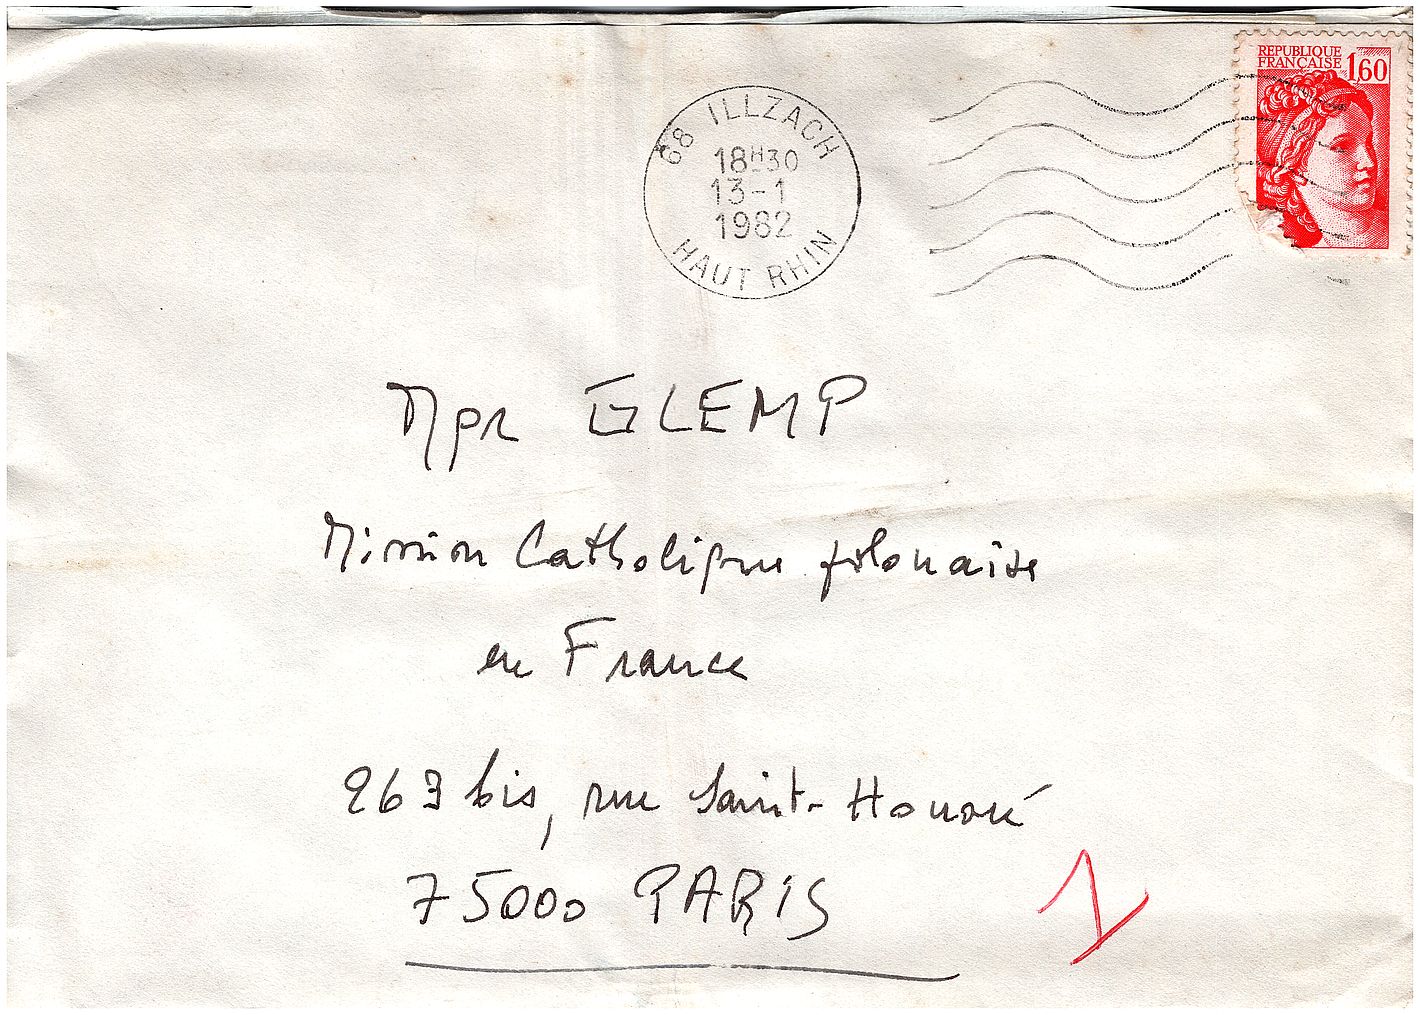 REPUBLIQUE
FRANÇAISE 1,60
68 ILLZACH
18H30
13-1
1982
HAUT RHIN
Mgr GLEMP
Mission Catholique polonaise
en France
263 bis, rue Saint-Honoré
75000 PARIS
1